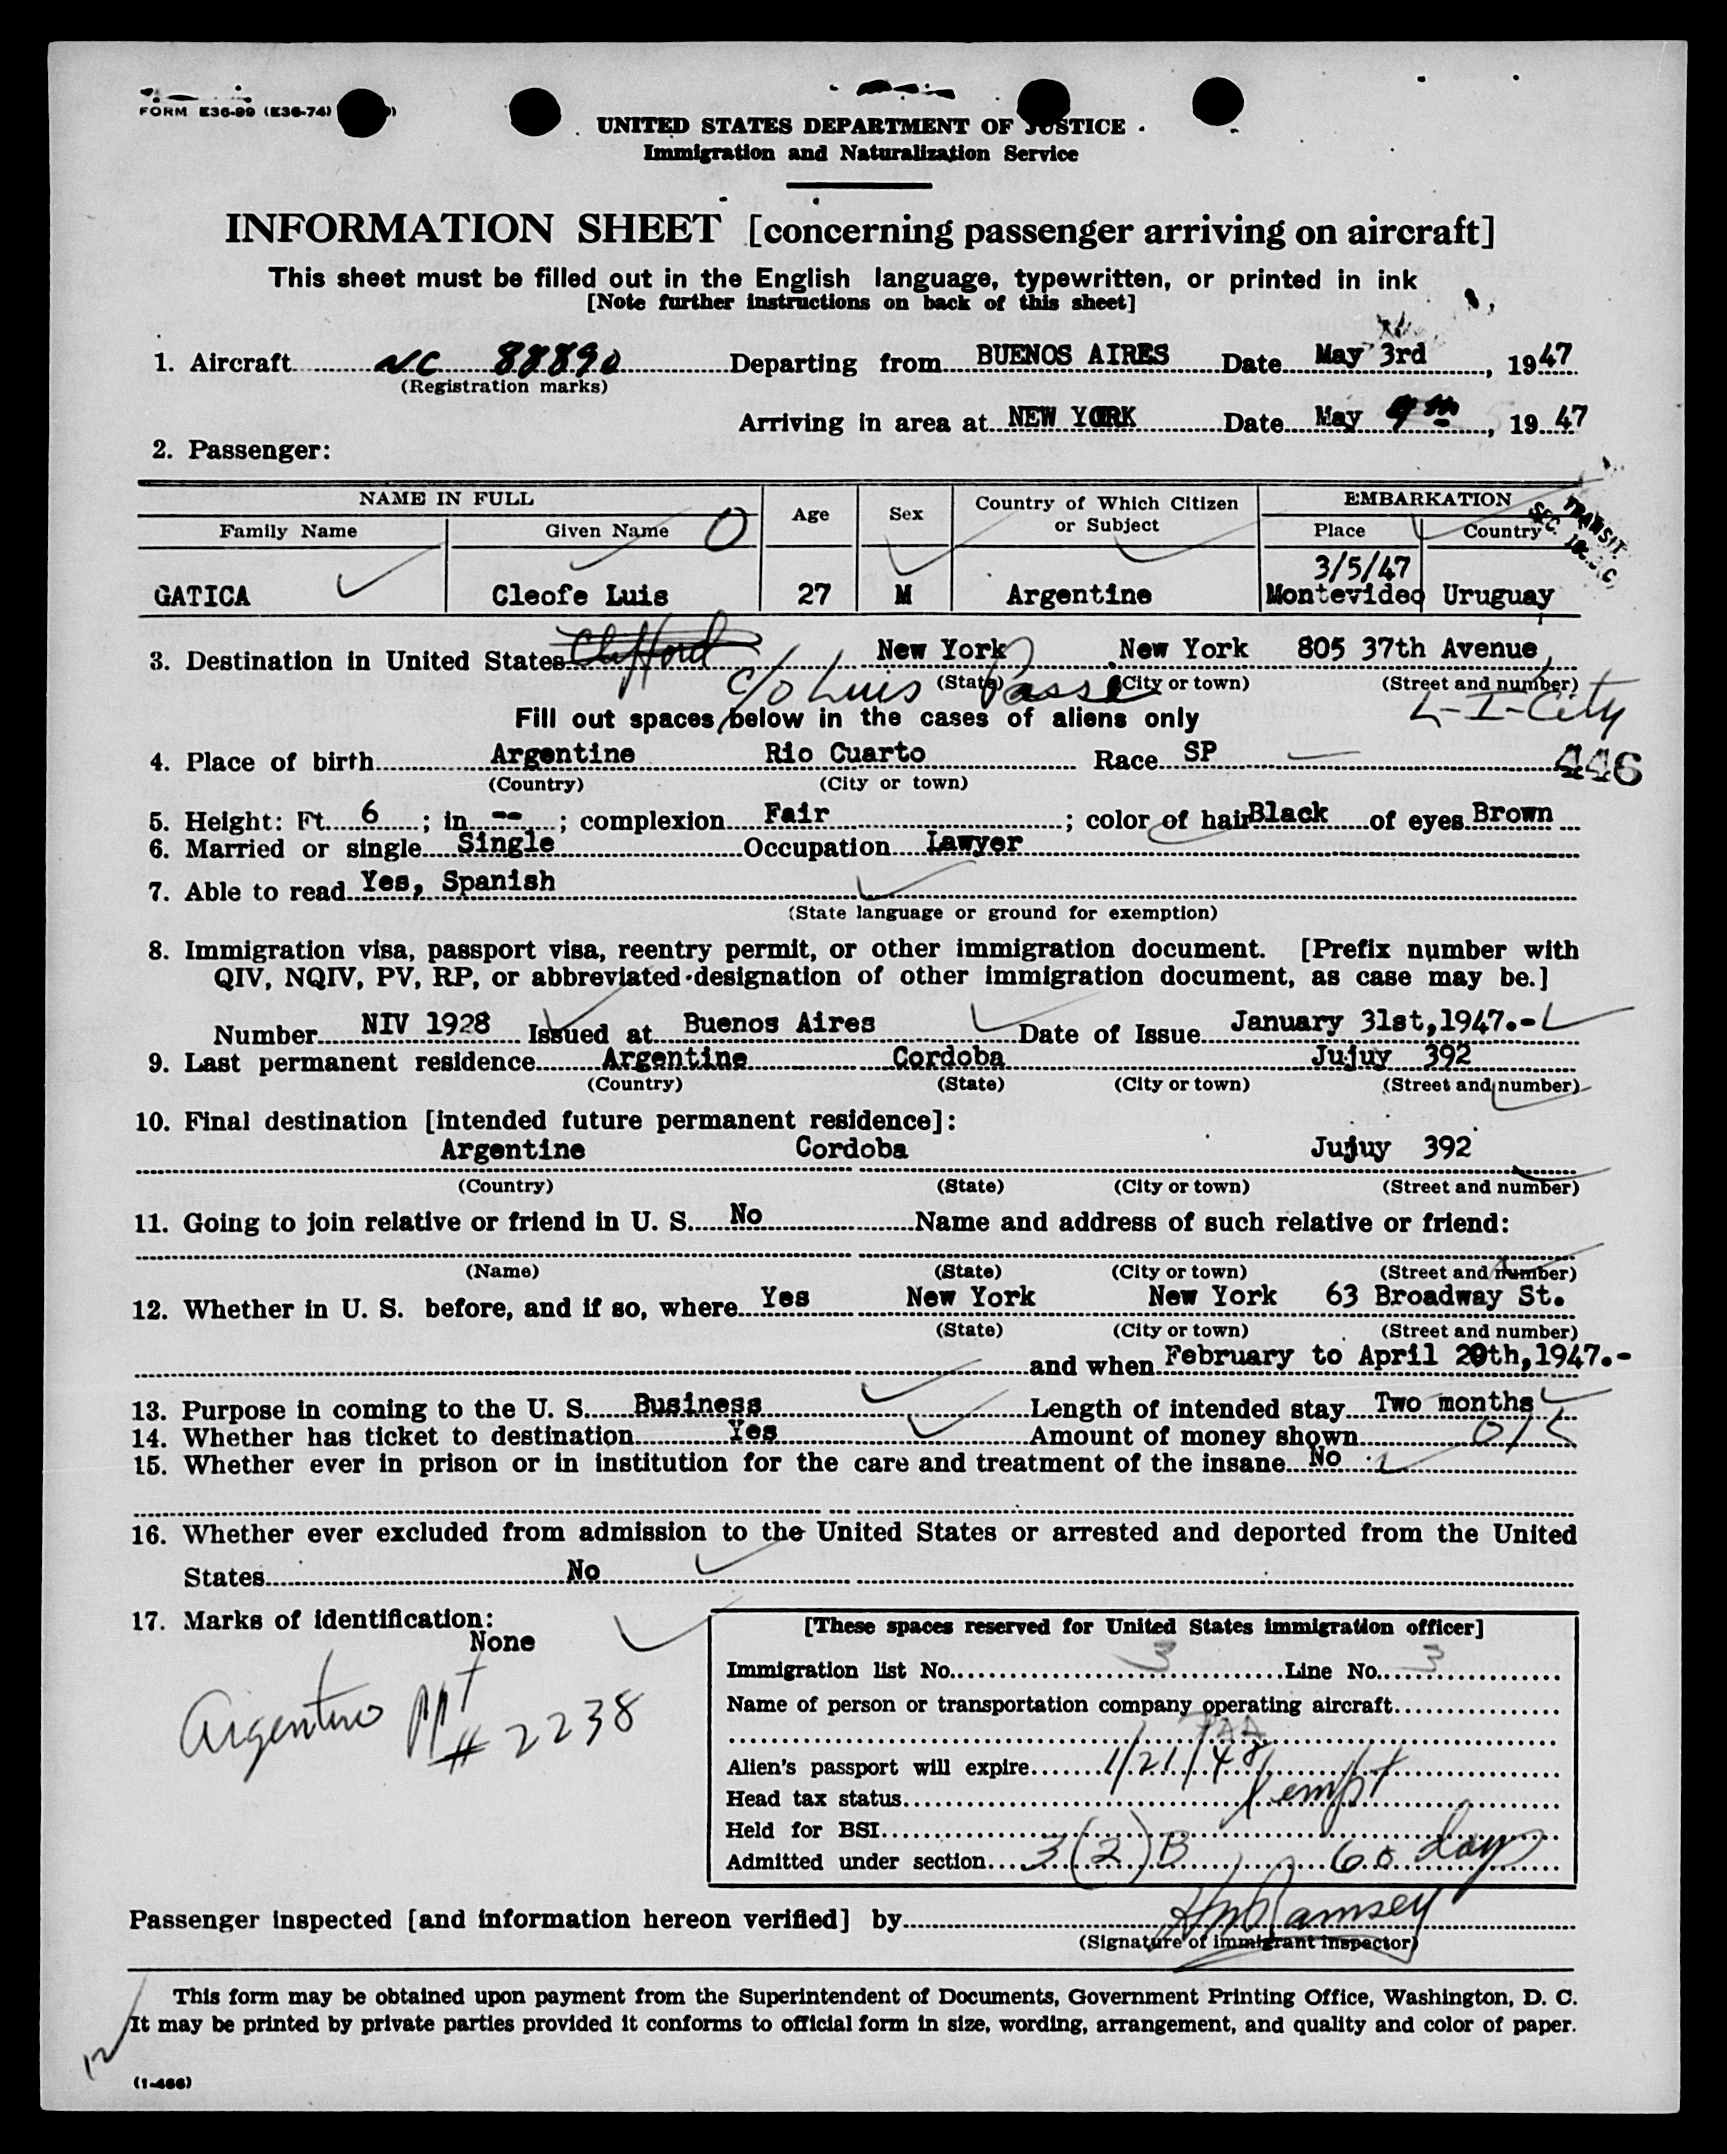 FORM E36-99 (E36-74)
UNITED STATES DEPARTMENT OF JUSTICE
Immigration and Naturalization Service
INFORMATION SHEET [concerning passenger arriving on aircraft]
This sheet must be filled out in the English language, typewritten, or printed in ink
[Note further instructions on back of this sheet]
1. Aircraft NC 88890 Departing from BUENOS AIRES Date May 3rd, 1947
(Registration marks)
Arriving in area at NEW YORK Date May, 19 47
2. Passenger:
NAME IN FULL Age Sex Country of Which Citizen or Subject EMBARKATION
Family Name Given Name Place Country
TRANSIT
SEC.
3/5/47
GATICA Cleofe Luis 27 M Argentine Montevideo Uruguay
3. Destination in United States Clifford New York New York 805 37th Avenue,
(State) (City or town) (Street and number)
c/o Luis Passe L-I-City
Fill out spaces below in the cases of aliens only
4. Place of birth Argentine Rio Cuarto Race SP
446
(Country) (City or town)
5. Height: Ft. 6; in. --; complexion Fair; color of hair Black of eyes Brown
6. Married or single Single Occupation Lawyer
7. Able to read Yes, Spanish
(State language or ground for exemption)
8. Immigration visa, passport visa, reentry permit, or other immigration document. [Prefix number with
QIV, NQIV, PV, RP, or abbreviated designation of other immigration document, as case may be.]
Number NIV 1928 Issued at Buenos Aires Date of Issue January 31st,1947.-
9. Last permanent residence Argentine Cordoba Jujuy 392
(Country) (State) (City or town) (Street and number)
10. Final destination [intended future permanent residence]:
Argentine Cordoba Jujuy 392
(Country) (State) (City or town) (Street and number)
11. Going to join relative or friend in U. S. No Name and address of such relative or friend:
(Name) (State) (City or town) (Street and number)
12. Whether in U. S. before, and if so, where Yes New York New York 63 Broadway St.
(State) (City or town) (Street and number)
and when February to April 20th,1947.-
13. Purpose in coming to the U. S. Business Length of intended stay Two months
14. Whether has ticket to destination Yes Amount of money shown
15. Whether ever in prison or in institution for the care and treatment of the insane No
16. Whether ever excluded from admission to the United States or arrested and deported from the United
States No
17. Marks of identification:
None
Argentino ppt # 2238
[These spaces reserved for United States immigration officer]
Immigration list No. 3 Line No. 3
Name of person or transportation company operating aircraft
PAA
Alien's passport will expire 1/21/48
Head tax status Exempt
Held for BSI
Admitted under section 3(2)B 60 days
Passenger inspected [and information hereon verified] by Ramsey
(Signature of immigrant inspector)
This form may be obtained upon payment from the Superintendent of Documents, Government Printing Office, Washington, D. C.
It may be printed by private parties provided it conforms to official form in size, wording, arrangement, and quality and color of paper.
12
(1-466)